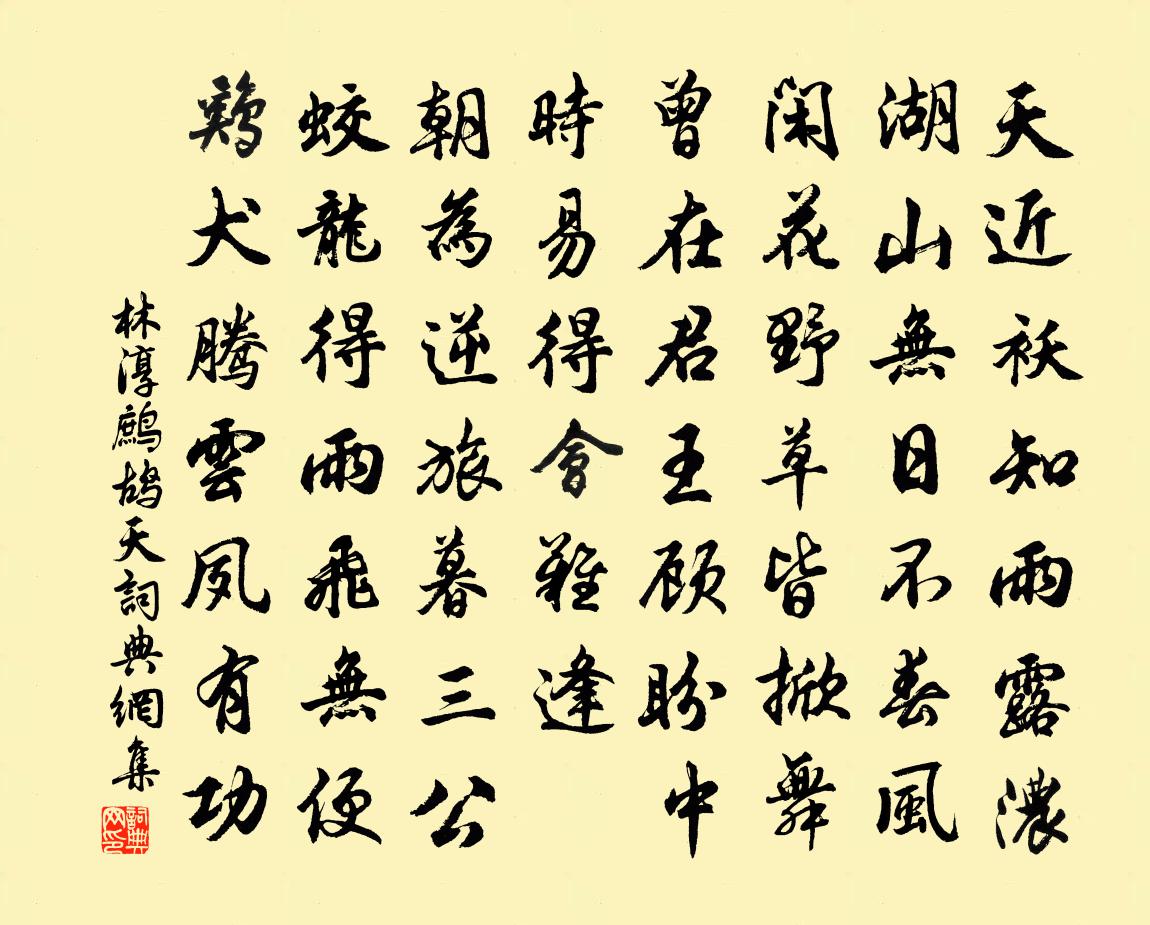 天近袄知雨露濃
湖山無日不春風
閑花野草皆掀舞
曾在君王顧盼中
時易得會難逢
朝為逆旅暮三公
蛟龍得雨飛無便
鷄犬騰雲夙有功
林淳鷓鴣天詞典網集
詞典网印